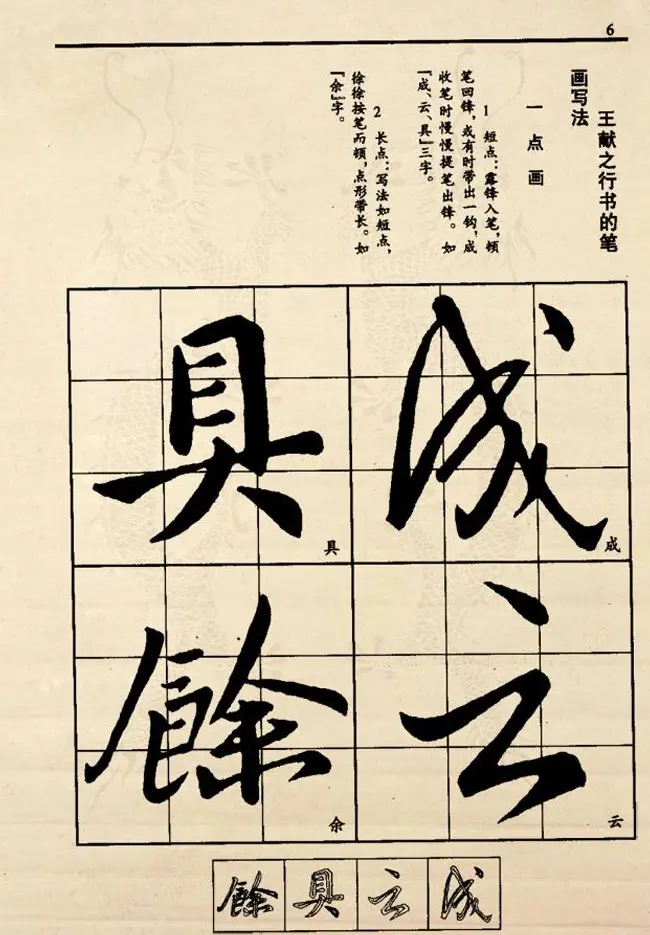 6
王献之行书的笔
画写法
一 点 画
1 短点：露锋入笔，顿
笔回锋，或有时带出一钩，成
收笔时慢慢提笔出锋。如
『成、云、具』三字。
2 长点：写法如短点，
徐徐按笔而顿，点形带长。如
『余』字。
成
成
云
云
具
具
餘
余
成云具餘